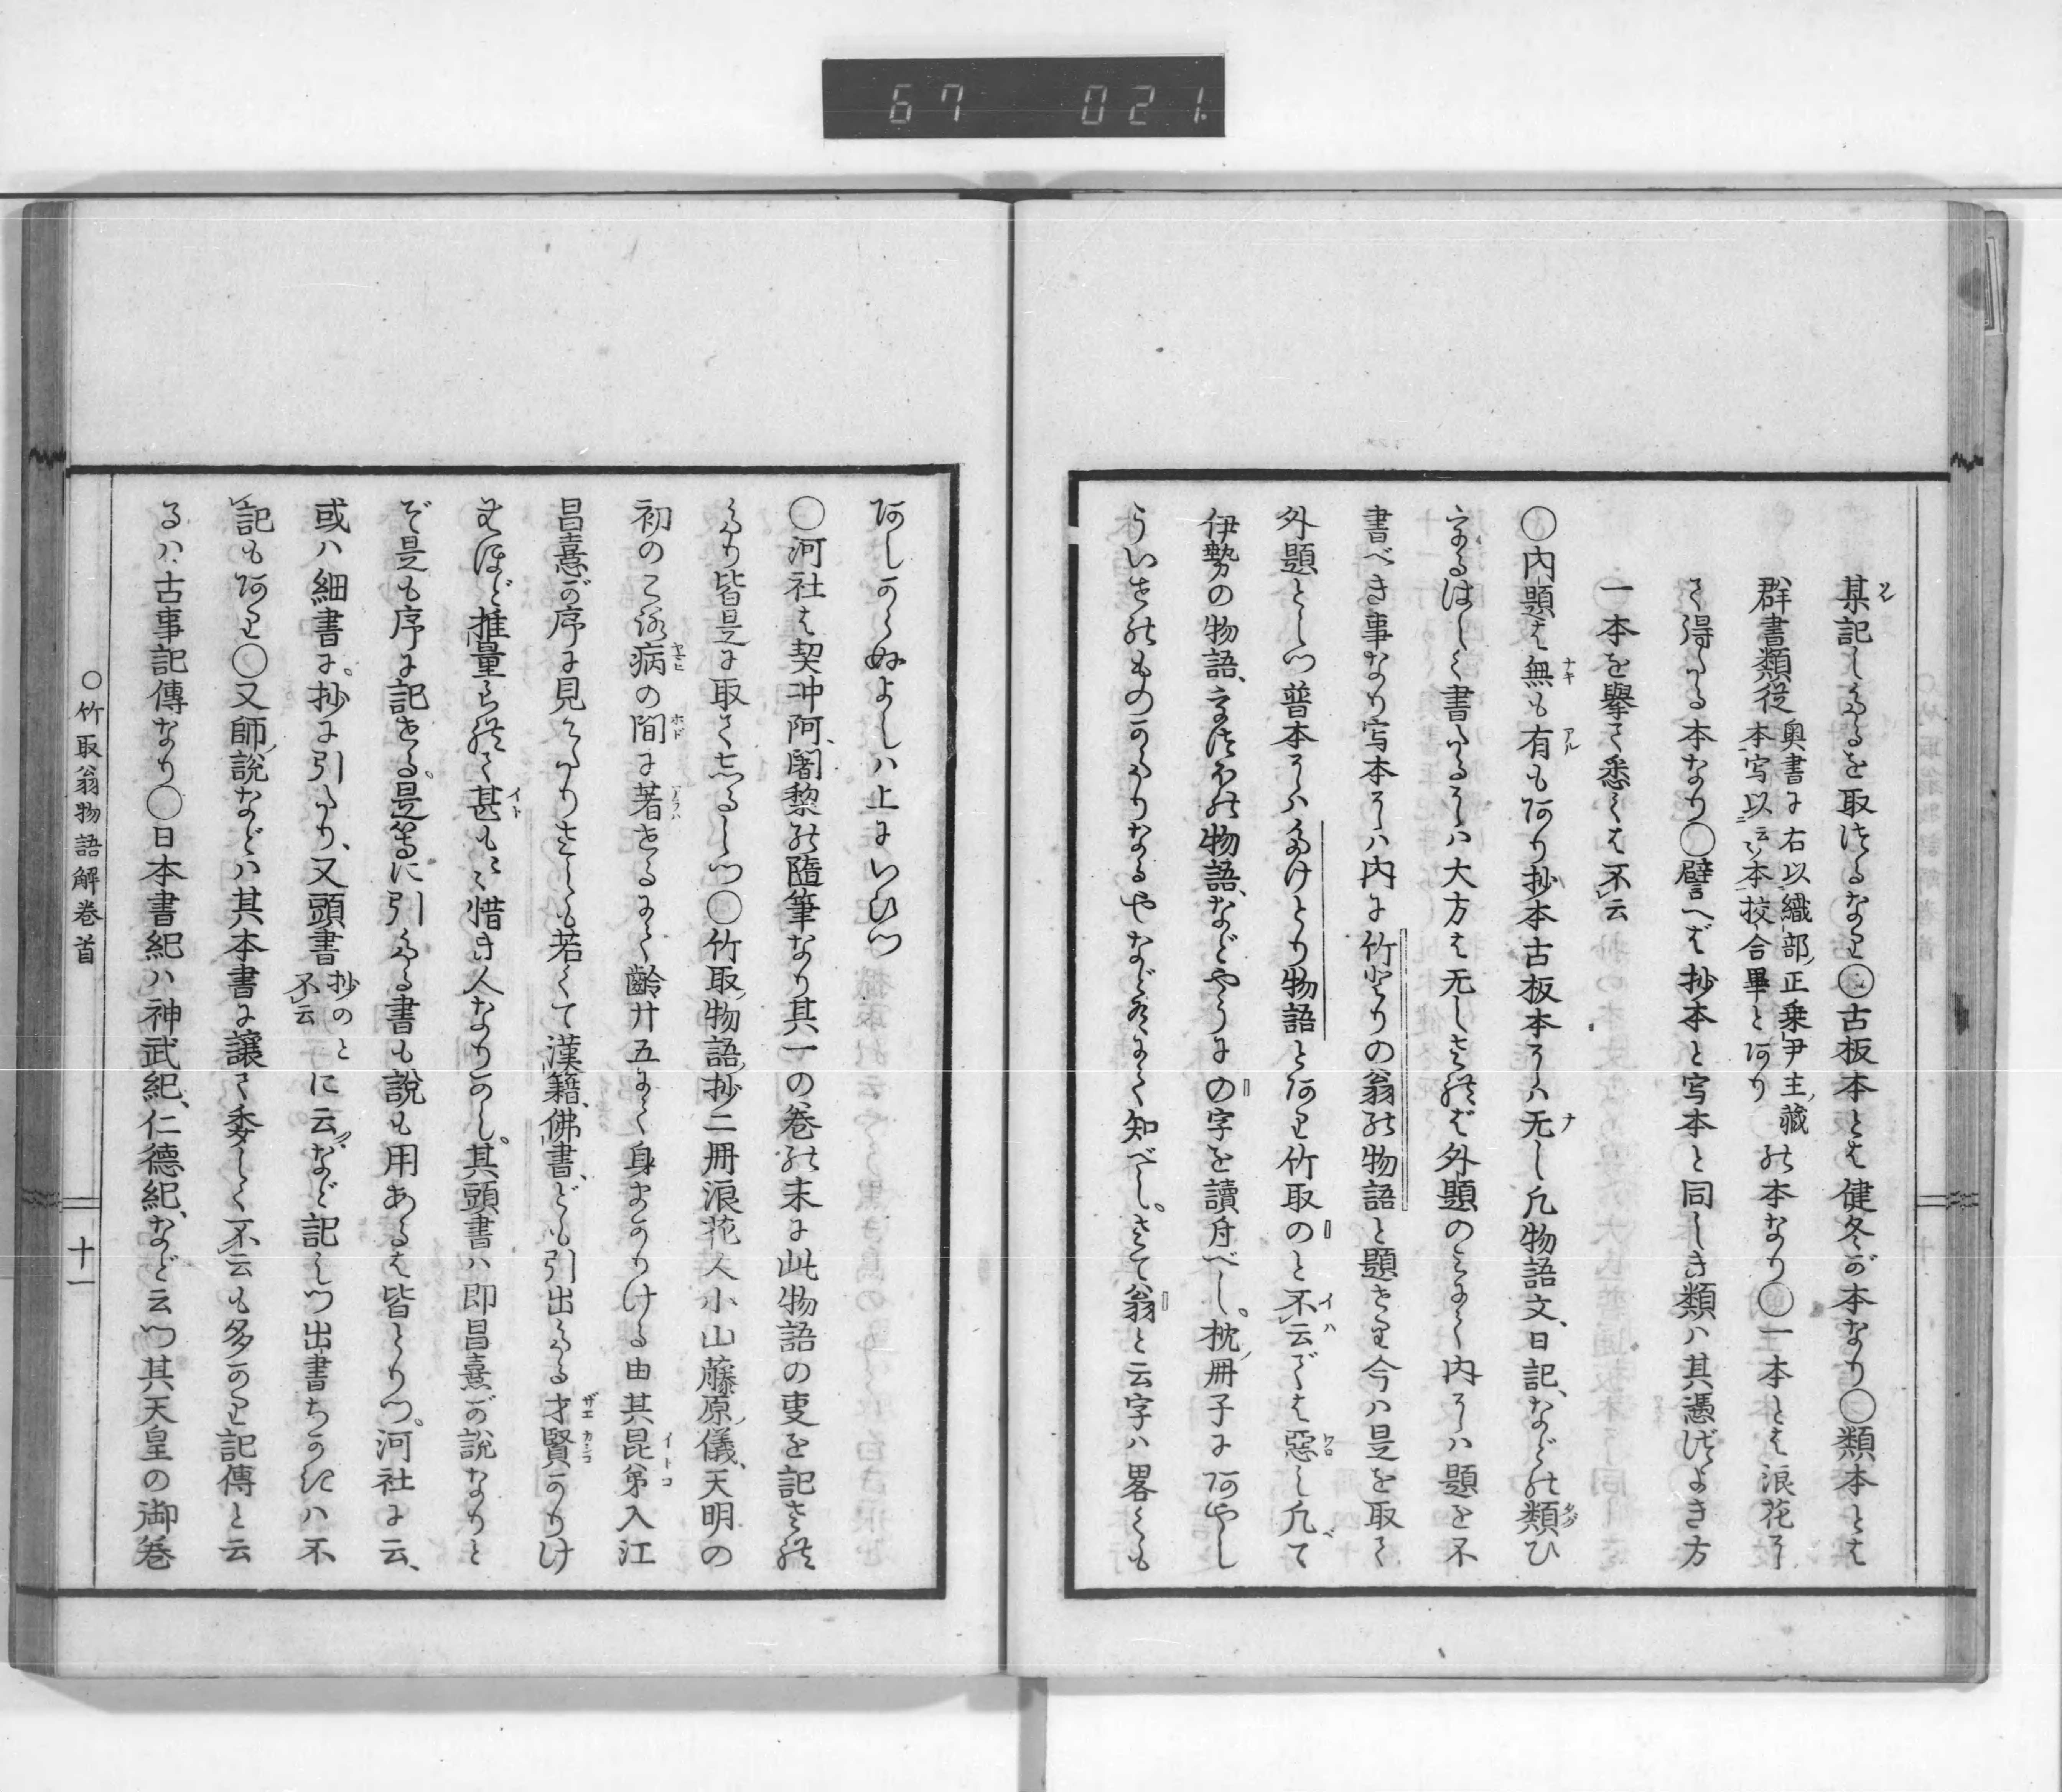 67 021
某記したるを取れるなり〇古板本とは健冬が本なり〇類本とは
群書類従奥書に右以織部正乗尹主蔵本写以云々本校合畢とありの本なり〇一本とは浪花にて
て得たる本なり〇譬へば抄本と写本と同しき類ハ其憑げよき方
一本を擧て悉くは不云
〇内題は無も有もあり抄本古板本にハ无し凡物語文、日記、などの類ひ
なるはしく書たるにハ大方は无しされば外題のみなく内にハ題を不
書べき事なり写本にハ内に竹とりの翁の物語と題せり今ハ是を取て
外題としつ普本にハたけとり物語とあり竹取のと不云では惡し凡て
伊勢の物語、うつほの物語、などやうにの字を讀舟べし。枕冊子にあやし
ういせのもの
なるやなど
知べし。さて翁と云字ハ畧くも
あしからぬよしハ上にいひつ
〇河社は契冲阿闍黎の隨筆なり其一の巻の末に此物語の叓を記され
たり皆是に取てしるしつ〇竹取物語抄二冊浪花人小山藤原儀、天明の
初のころ病の間に著せるにて齢廿五にて身まかりける由其昆弟入江
昌憙が序に見えたりされども若くて漢籍、佛書、ども引出たる才賢かりけ
むほど推量られて甚も〻惜き人なりかし。其頭書ハ即昌熹が説なりと
ぞ是も序に記せる。是等に引たる書も説も用あるは皆とりつ。河社に云、
或ハ細書に。抄に引たり、又頭書抄のとに云など不云記しつ出書ちかきハ不
記もあり〇又師説などハ其本書に譲て委しく不云も多かり記傳と云
るハ古事記傳なり〇日本書紀ハ神武紀、仁徳紀、など云つ其天皇の御巻
〇竹取翁物語解巻首
十一